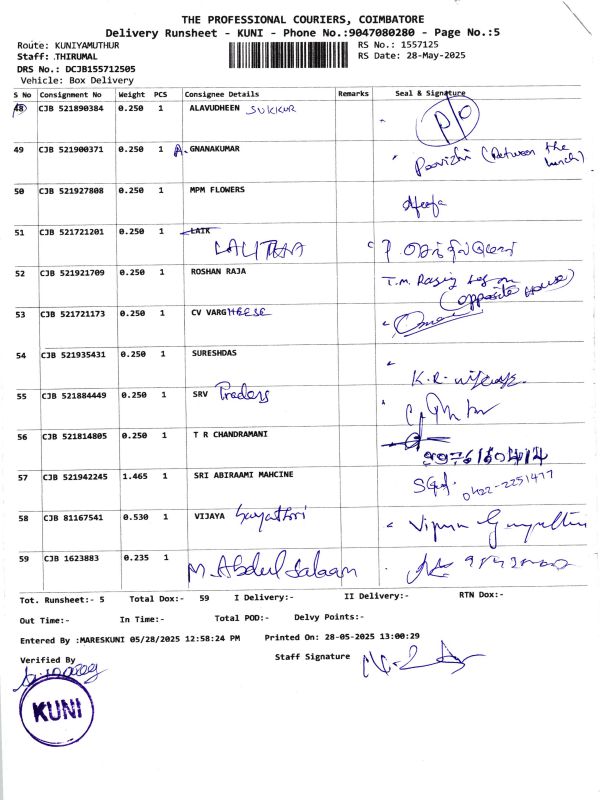 THE PROFESSIONAL COURIERS, COIMBATORE
Delivery Runsheet - KUNI - Phone No.:9047080280 - Page No.:5
Route: KUNIYAMUTHUR RS No.: 1557125
Staff: THIRUMAL RS Date: 28-May-2025
DRS No.: DCJB155712505
Vehicle: Box Delivery
S No Consignment No Weight PCS Consignee Details Remarks Seal & Signature
48 CJB 521890384 0.250 1 ALAVUDHEEN SUKKUR
49 CJB 521900371 0.250 1 A. GNANAKUMAR (Between the lunch)
50 CJB 521927808 0.250 1 MPM FLOWERS
51 CJB 521721201 0.250 1 LAIK LALITHA
52 CJB 521921709 0.250 1 ROSHAN RAJA T.M. (opposite House)
53 CJB 521721173 0.250 1 CV VARGHEESE
54 CJB 521935431 0.250 1 SURESHDAS K.R.
55 CJB 521884449 0.250 1 SRV Traders
56 CJB 521814805 0.250 1 T R CHANDRAMANI
57 CJB 521942245 1.465 1 SRI ABIRAAMI MAHCINE 0422-2251477
58 CJB 81167541 0.530 1 VIJAYA Gayathri
59 CJB 1623883 0.235 1 M. Abdul Salaam
Tot. Runsheet:- 5 Total Dox:- 59 I Delivery:- II Delivery:- RTN Dox:-
Out Time:- In Time:- Total POD:- Delvy Points:-
Entered By :MARESKUNI 05/28/2025 12:58:24 PM Printed On: 28-05-2025 13:00:29
Verified By Staff Signature
KUNI